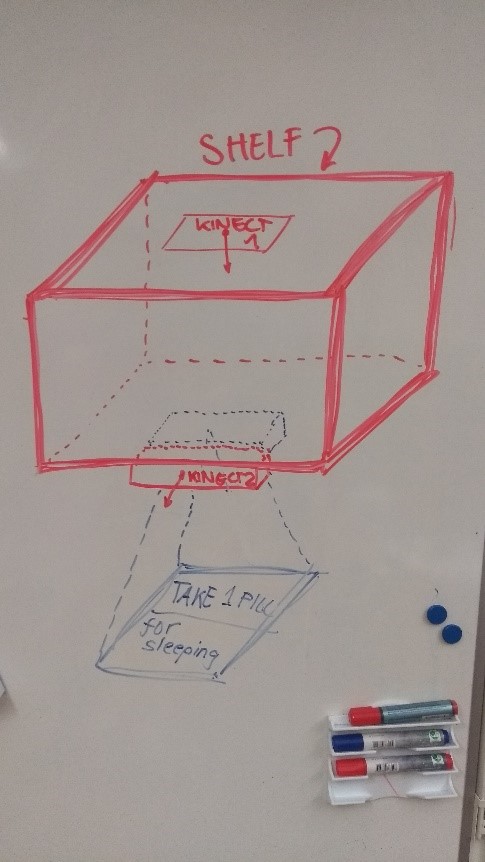 SHELF
KINECT
1
KINECT2
TAKE 1 PILL
for
sleeping